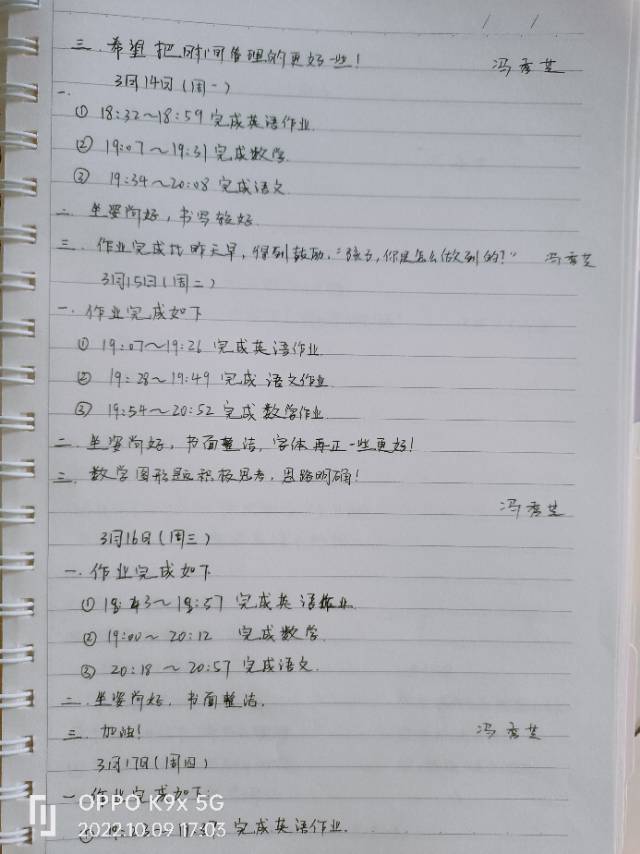 三. 希望把时间管理的更好一些!
冯秀芝
3月14日(周一)
一.
① 18:32～18:59 完成英语作业.
② 19:07～19:31 完成数学.
③ 19:34～20:08 完成语文.
二. 坐姿尚好, 书写较好.
三. 作业完成比昨天早, 得到鼓励. "孩子, 你是怎么做到的?" 冯秀芝
3月15日(周二)
一. 作业完成如下
① 19:07～19:26 完成英语作业.
② 19:28～19:49 完成语文作业.
③ 19:54～20:52 完成数学作业.
二. 坐姿尚好, 书面整洁, 字体再正一些更好!
三. 数学图形题积极思考, 思路明确!
冯秀芝
3月16日(周三)
一. 作业完成如下
① 18:43～18:57 完成英语作业.
② 19:00～20:12 完成数学.
③ 20:18～20:57 完成语文.
二. 坐姿尚好, 书面整洁.
三. 加油! 冯秀芝
3月17日(周四)
一. 作业完成如下
完成英语作业.
OPPO K9x 5G
2022.10.09 17:03